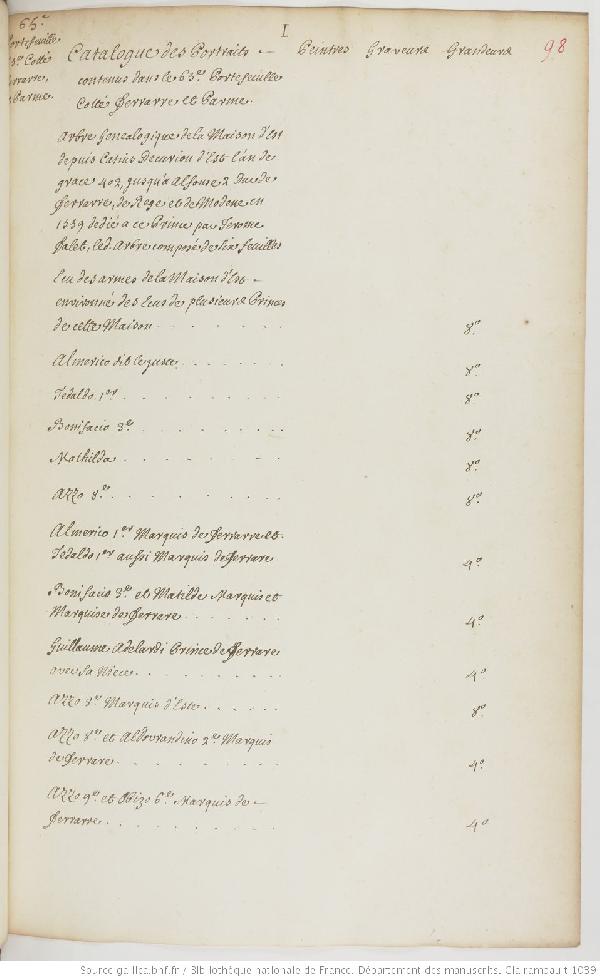 65e
Portefeuille
Cotté
Ferrarre,
Parme.
I
98
Catalogue des Portraits Peintres Graveurs Grandeurs
contenus dans le 65e Portefeuille
Cotté Ferrarre et Parme.
Arbre Genealogique de la Maison d'Est
depuis Decurion d'Est l'an de
grace 402, jusqu'a Alfonse 2 Duc de
Ferrarre, de Rege et de Modene en
1559 dedié a ce Prince par Jerome
Falet, led. Arbre composé de six feuilles
Ecu des armes de la Maison d'Est
environné des Ecus de plusieurs Princes
de cette Maison . . . . . . 8o
Almerico dit le juste . . . . . . 8o
Tedaldo 1er . . . . . . 8o
Bonifacio 3e . . . . . . 8o
Mathilda . . . . . . 8o
Azzo 8e . . . . . . 8o
Almerico 1er Marquis de Ferrarre et
Tedaldo 1er aussi Marquis de Ferrare 4o
Bonifacio 3e et Matilde Marquis et
Marquise de Ferrare . . . . . . 4o
Guillaume Adelardi Prince de Ferrare
avec sa Niece . . . . . . 4o
Azzo Marquis d'Este . . . . . . 8o
Azzo 8e et Aldovrandino 2e Marquis
de Ferrare . . . . . . 4o
Azzo 9e et Obizo 6e Marquis de
Ferrarre . . . . . . 4o
Source gallica.bnf.fr / Bibliothèque nationale de France. Département des manuscrits. Clairambault 1039